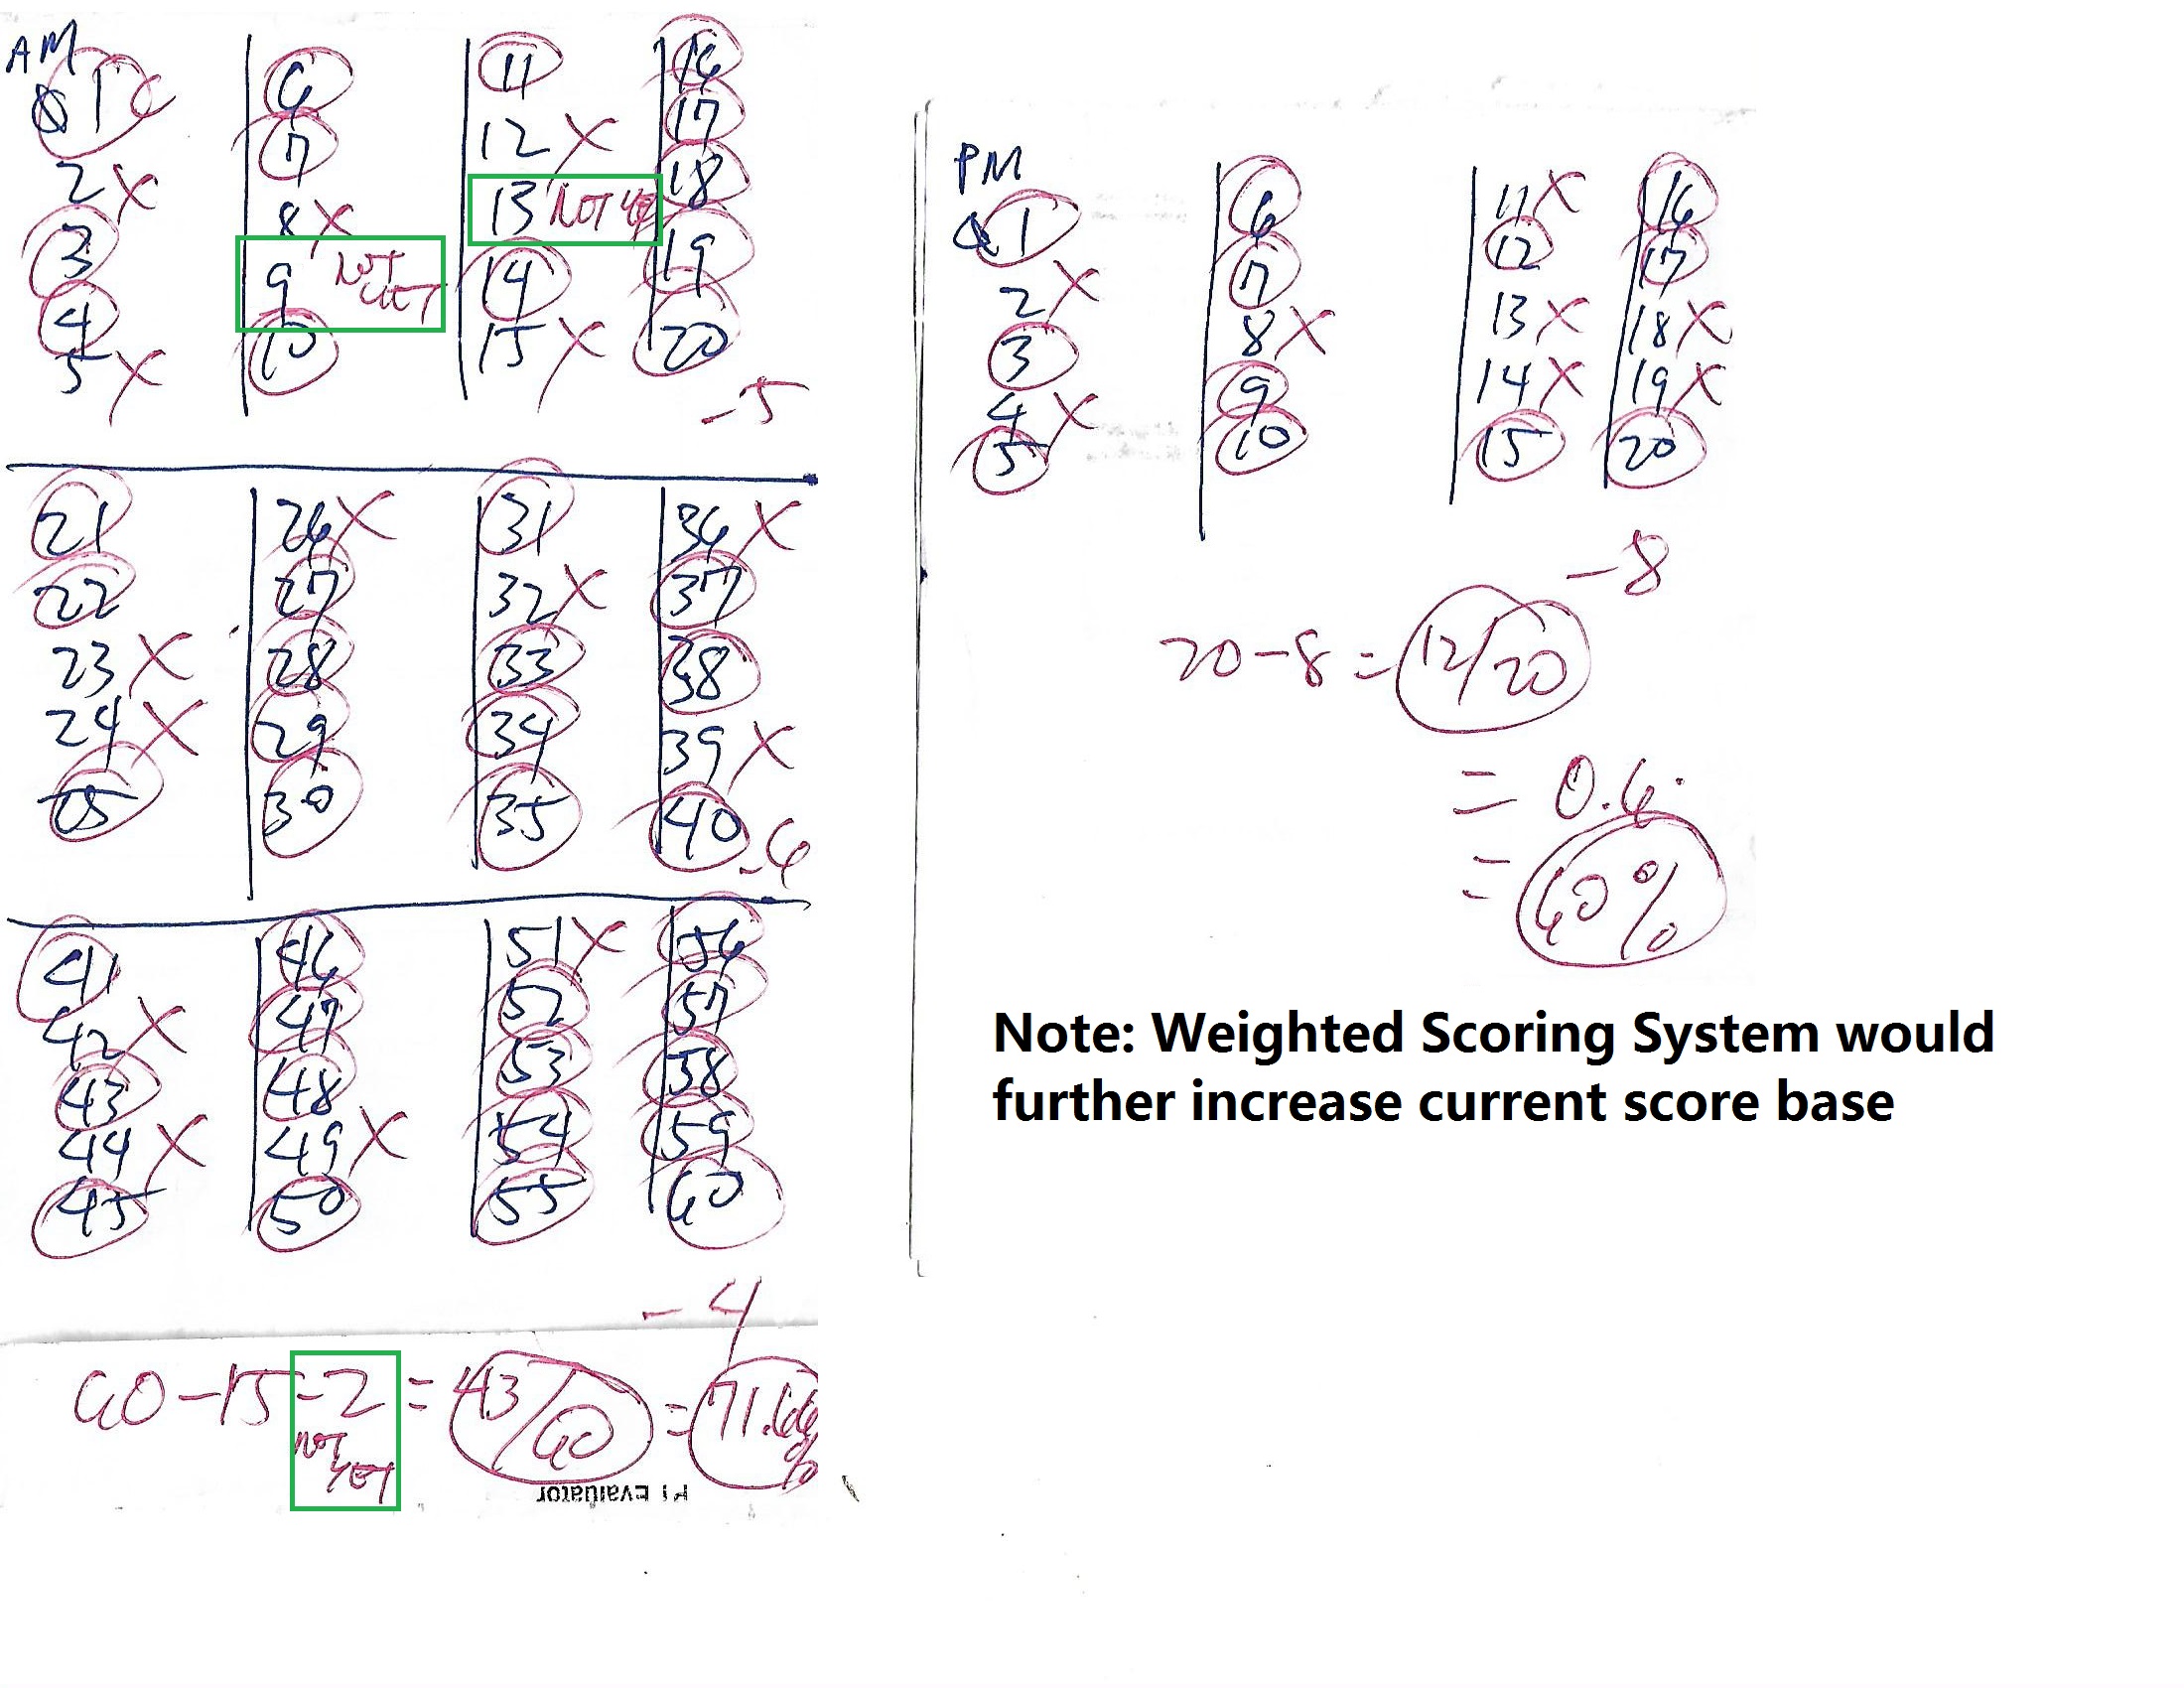 AM
Q1 C
2 X
3
4
5 X
6
7
8 X
9 NOT YET
10
11
12 X
13 NOT YET
14
15 X
16
17
18
19
20
-5
21
22
23 X
24 X
25
26 X
27
28
29
30
31
32 X
33
34
35
36 X
37
38
39 X
40
-6
41
42 X
43
44 X
45
46
47
48
49 X
50
51 X
52
53
54
55
56
57
58
59
60
-4
60-15-2 = 43/60 = 71.66%
NOT
YET
PI Evaluator
PM
Q1
2 X
3
4 X
5
6
7
8 X
9
10
11 X
12
13 X
14 X
15
16
17
18 X
19 X
20
-8
20-8 = 12/20
= 0.6
= 60%
Note: Weighted Scoring System would
further increase current score base